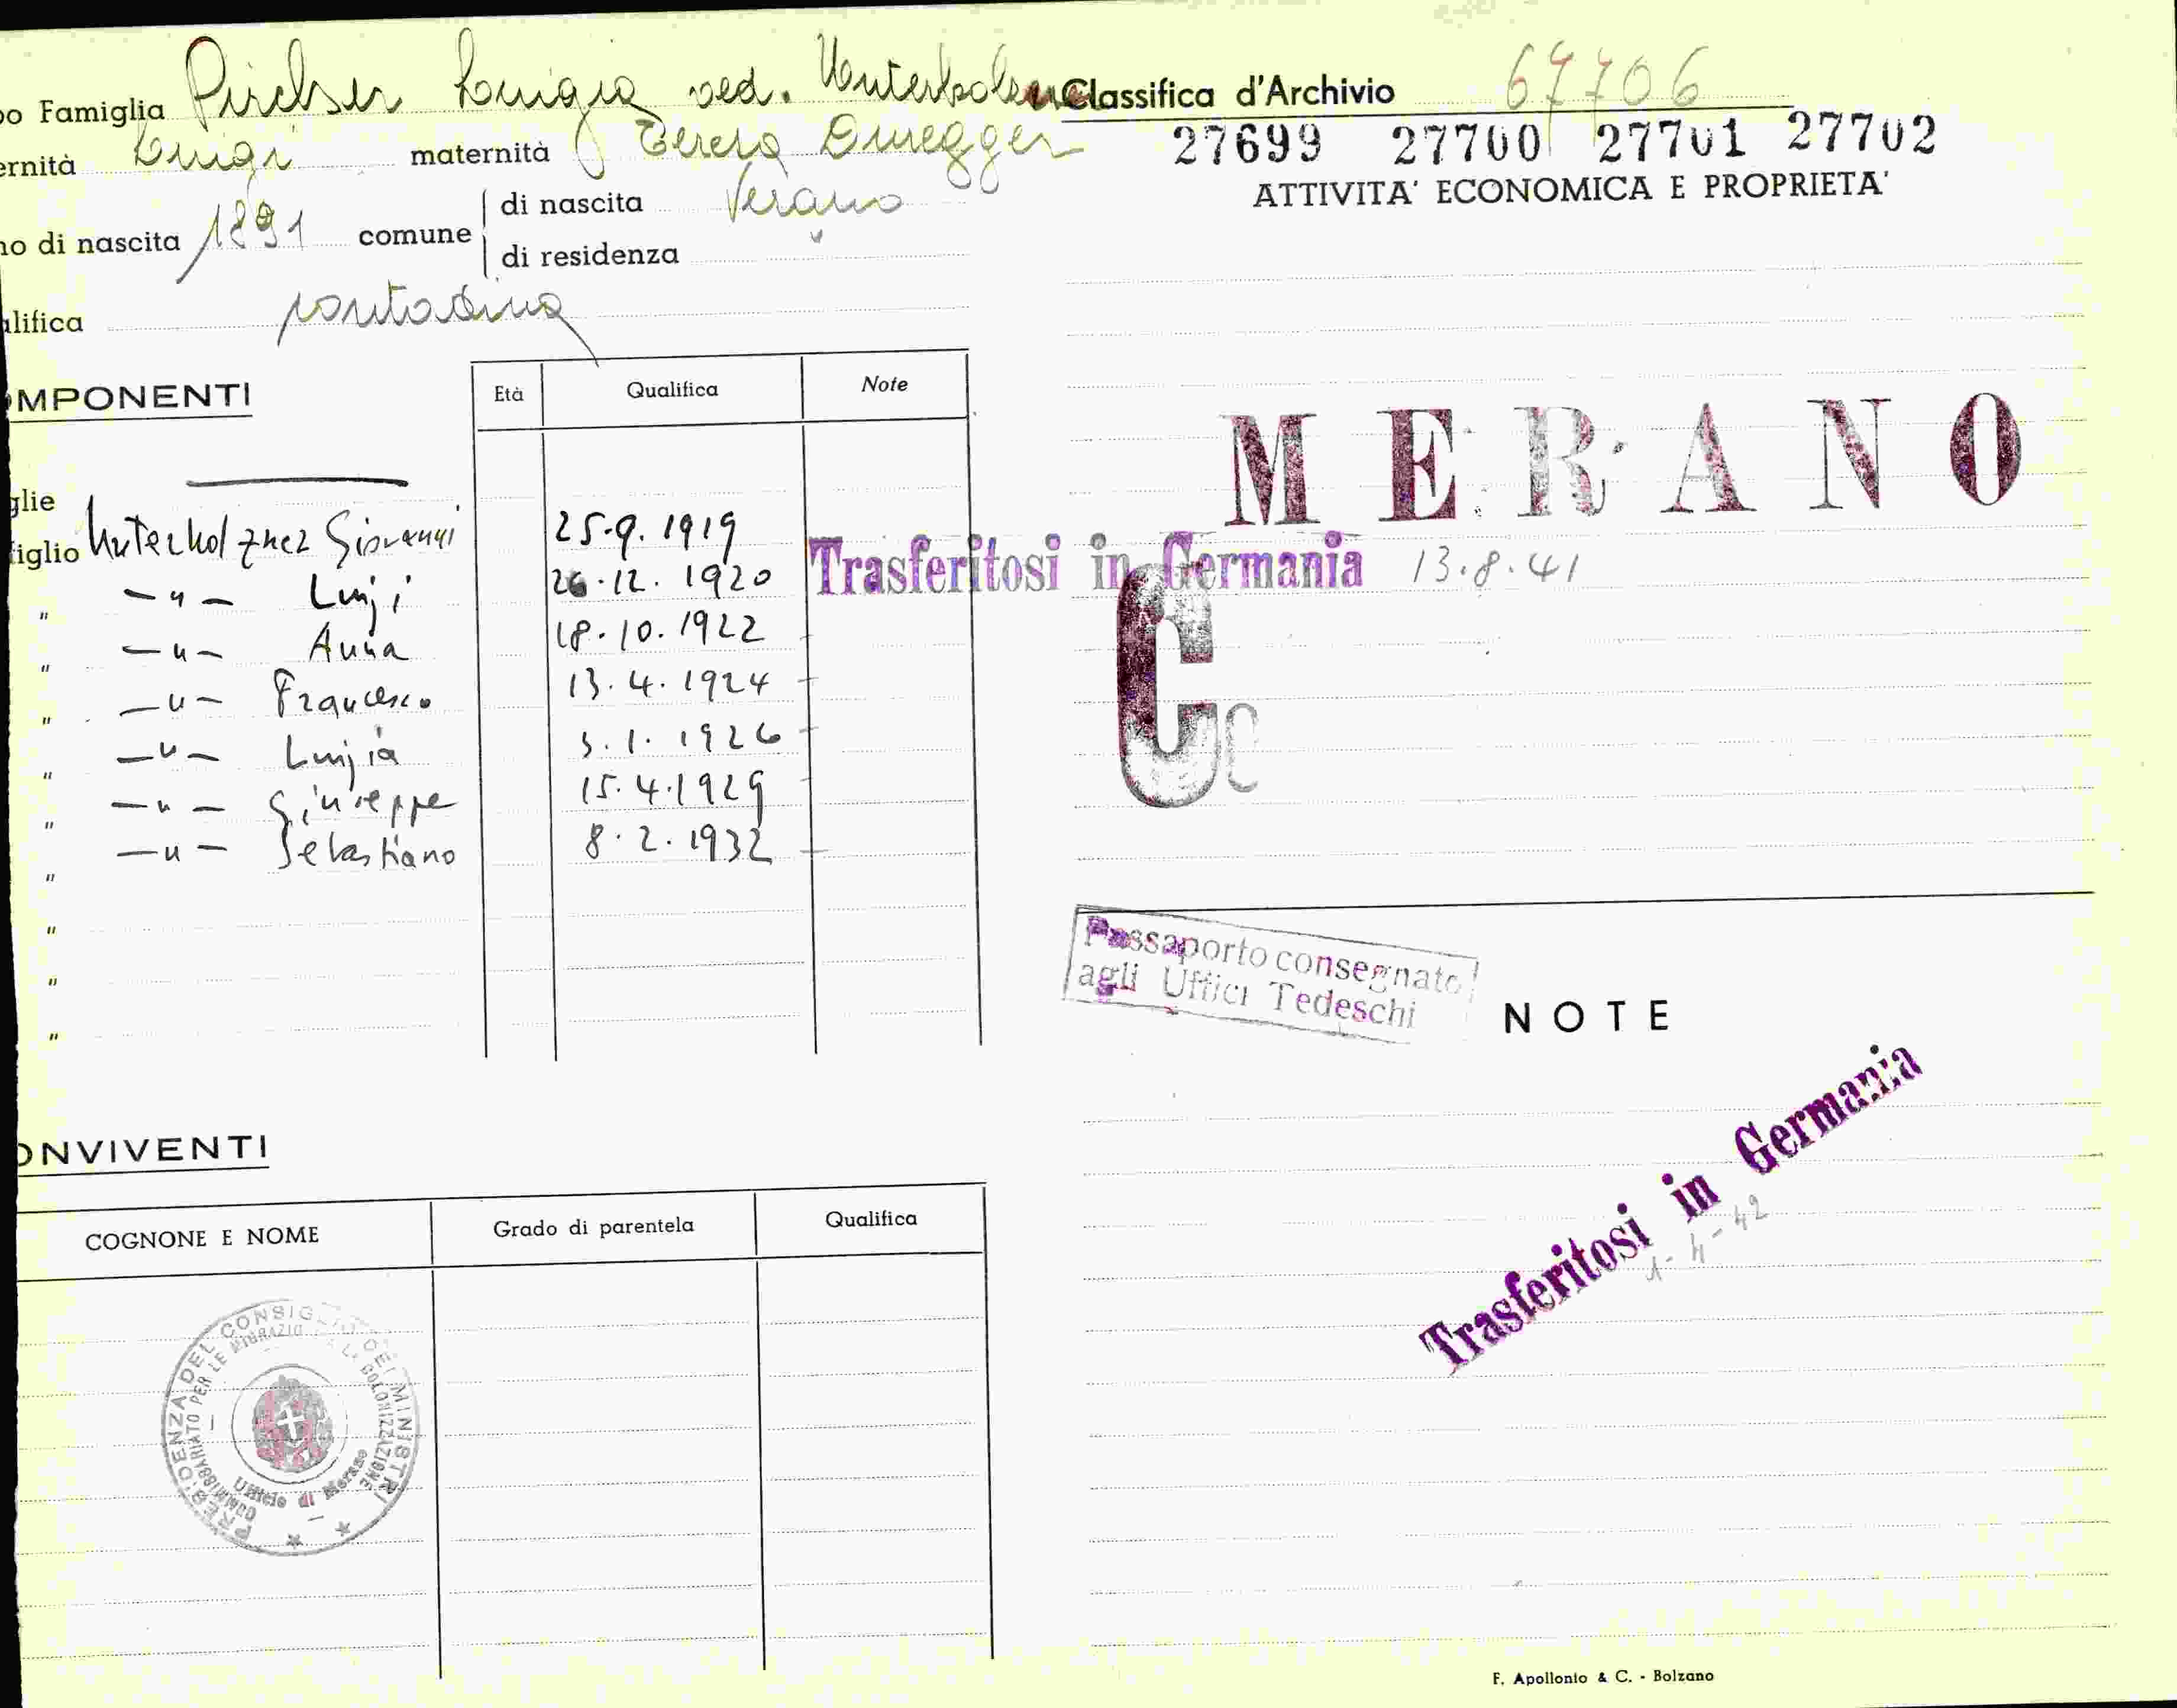 po Famiglia Pircher Luigia ved. Unterholzner Classifica d'Archivio 67706
ernità Luigi maternità Teresa Duregger
27699 27700 27701 27702
no di nascita 1891 comune di nascita Verano
di residenza
ATTIVITA' ECONOMICA E PROPRIETA'
alifica contadina
OMPONENTI
Età Qualifica Note
glie
MERANO
figlio Unterholzner Giovanni 25.9.1919
" -"- Luigi 26.12.1920 Trasferitosi in Germania 13.8.41
" -"- Anna 18.10.1922
" -"- Francesco 13.4.1924
" -"- Luigia 3.1.1926
" -"- Giuseppe 15.4.1929
" -"- Sebastiano 8.2.1932
"
"
"
C C
Passaporto consegnato
agli Uffici Tedeschi
NOTE
Trasferitosi in Germania
1-4-42
ONVIVENTI
COGNONE E NOME Grado di parentela Qualifica
PRESIDENZA DEL CONSIGLIO DEI MINISTRI
COMMISSARIATO PER LE MIGRAZIO LA COLONIZZAZIONE
Ufficio di Merano
F. Apollonio & C. - Bolzano